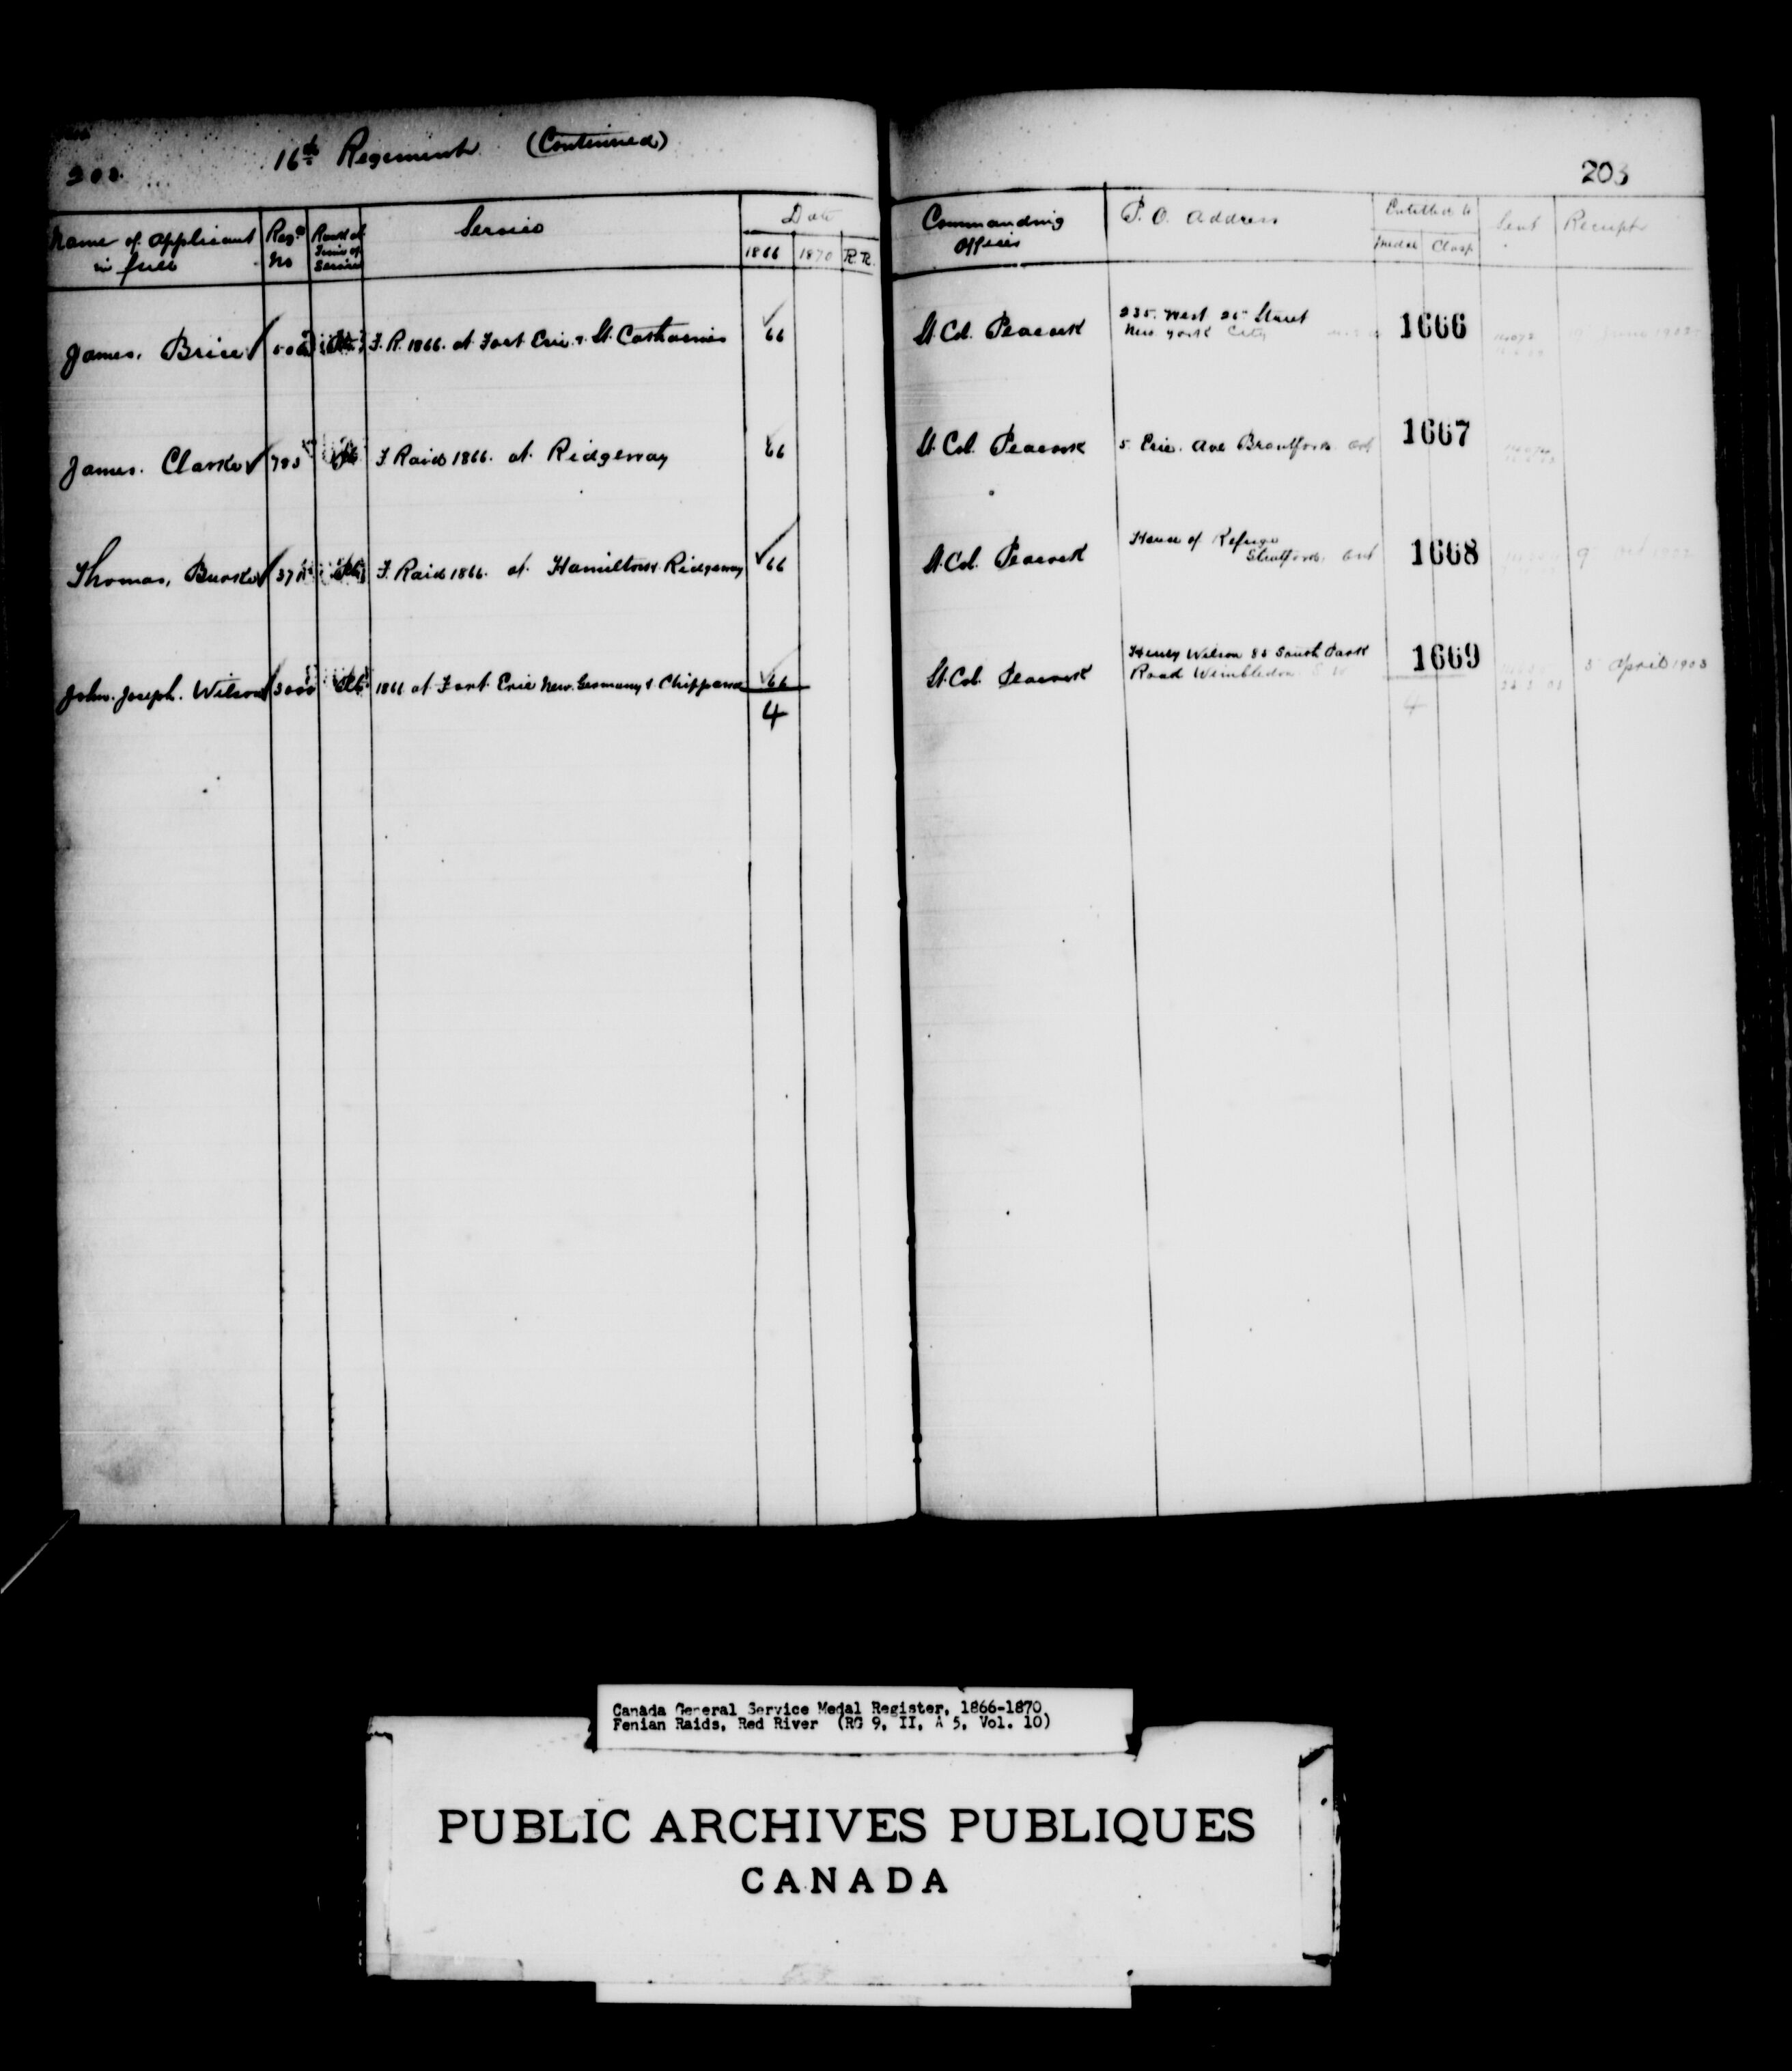 203
16th Regiment (Continued)
203
Name of applicant in full
Reg.l No
Rank at Time of Service
Service
Date
1866 1870 R.R.
Commanding Officer
P. O. Address
Entitled to
Medal Clasp
Sent
Receipt
James. Brice F. R. 1866. at Fort Erie & St. Catharines 66 Lt. Col. Peacock 235. West 25 Street 1666
New York City
James. Clarke 793 F Raid 1866. at Ridgeway 66 Lt. Col. Peacock 5 Erie. Ave Brantford. Ont 1667
Thomas, Burke F. Raid 1866. at Hamilton & Ridgeway 66 Lt. Col. Peacock House of Refuge 1668 9
Stratford. Ont
John. Joseph. Wilson 1866 at Fort Erie New. Germany & Chippawa 66 Lt. Col. Peacock Henry Wilson 85 South Park 1669 5 April 1903
Road Wimbledon S W
4
4
Canada General Service Medal Register, 1866-1870
Fenian Raids, Red River (RG 9, II, A 5, Vol. 10)
PUBLIC ARCHIVES PUBLIQUES
CANADA